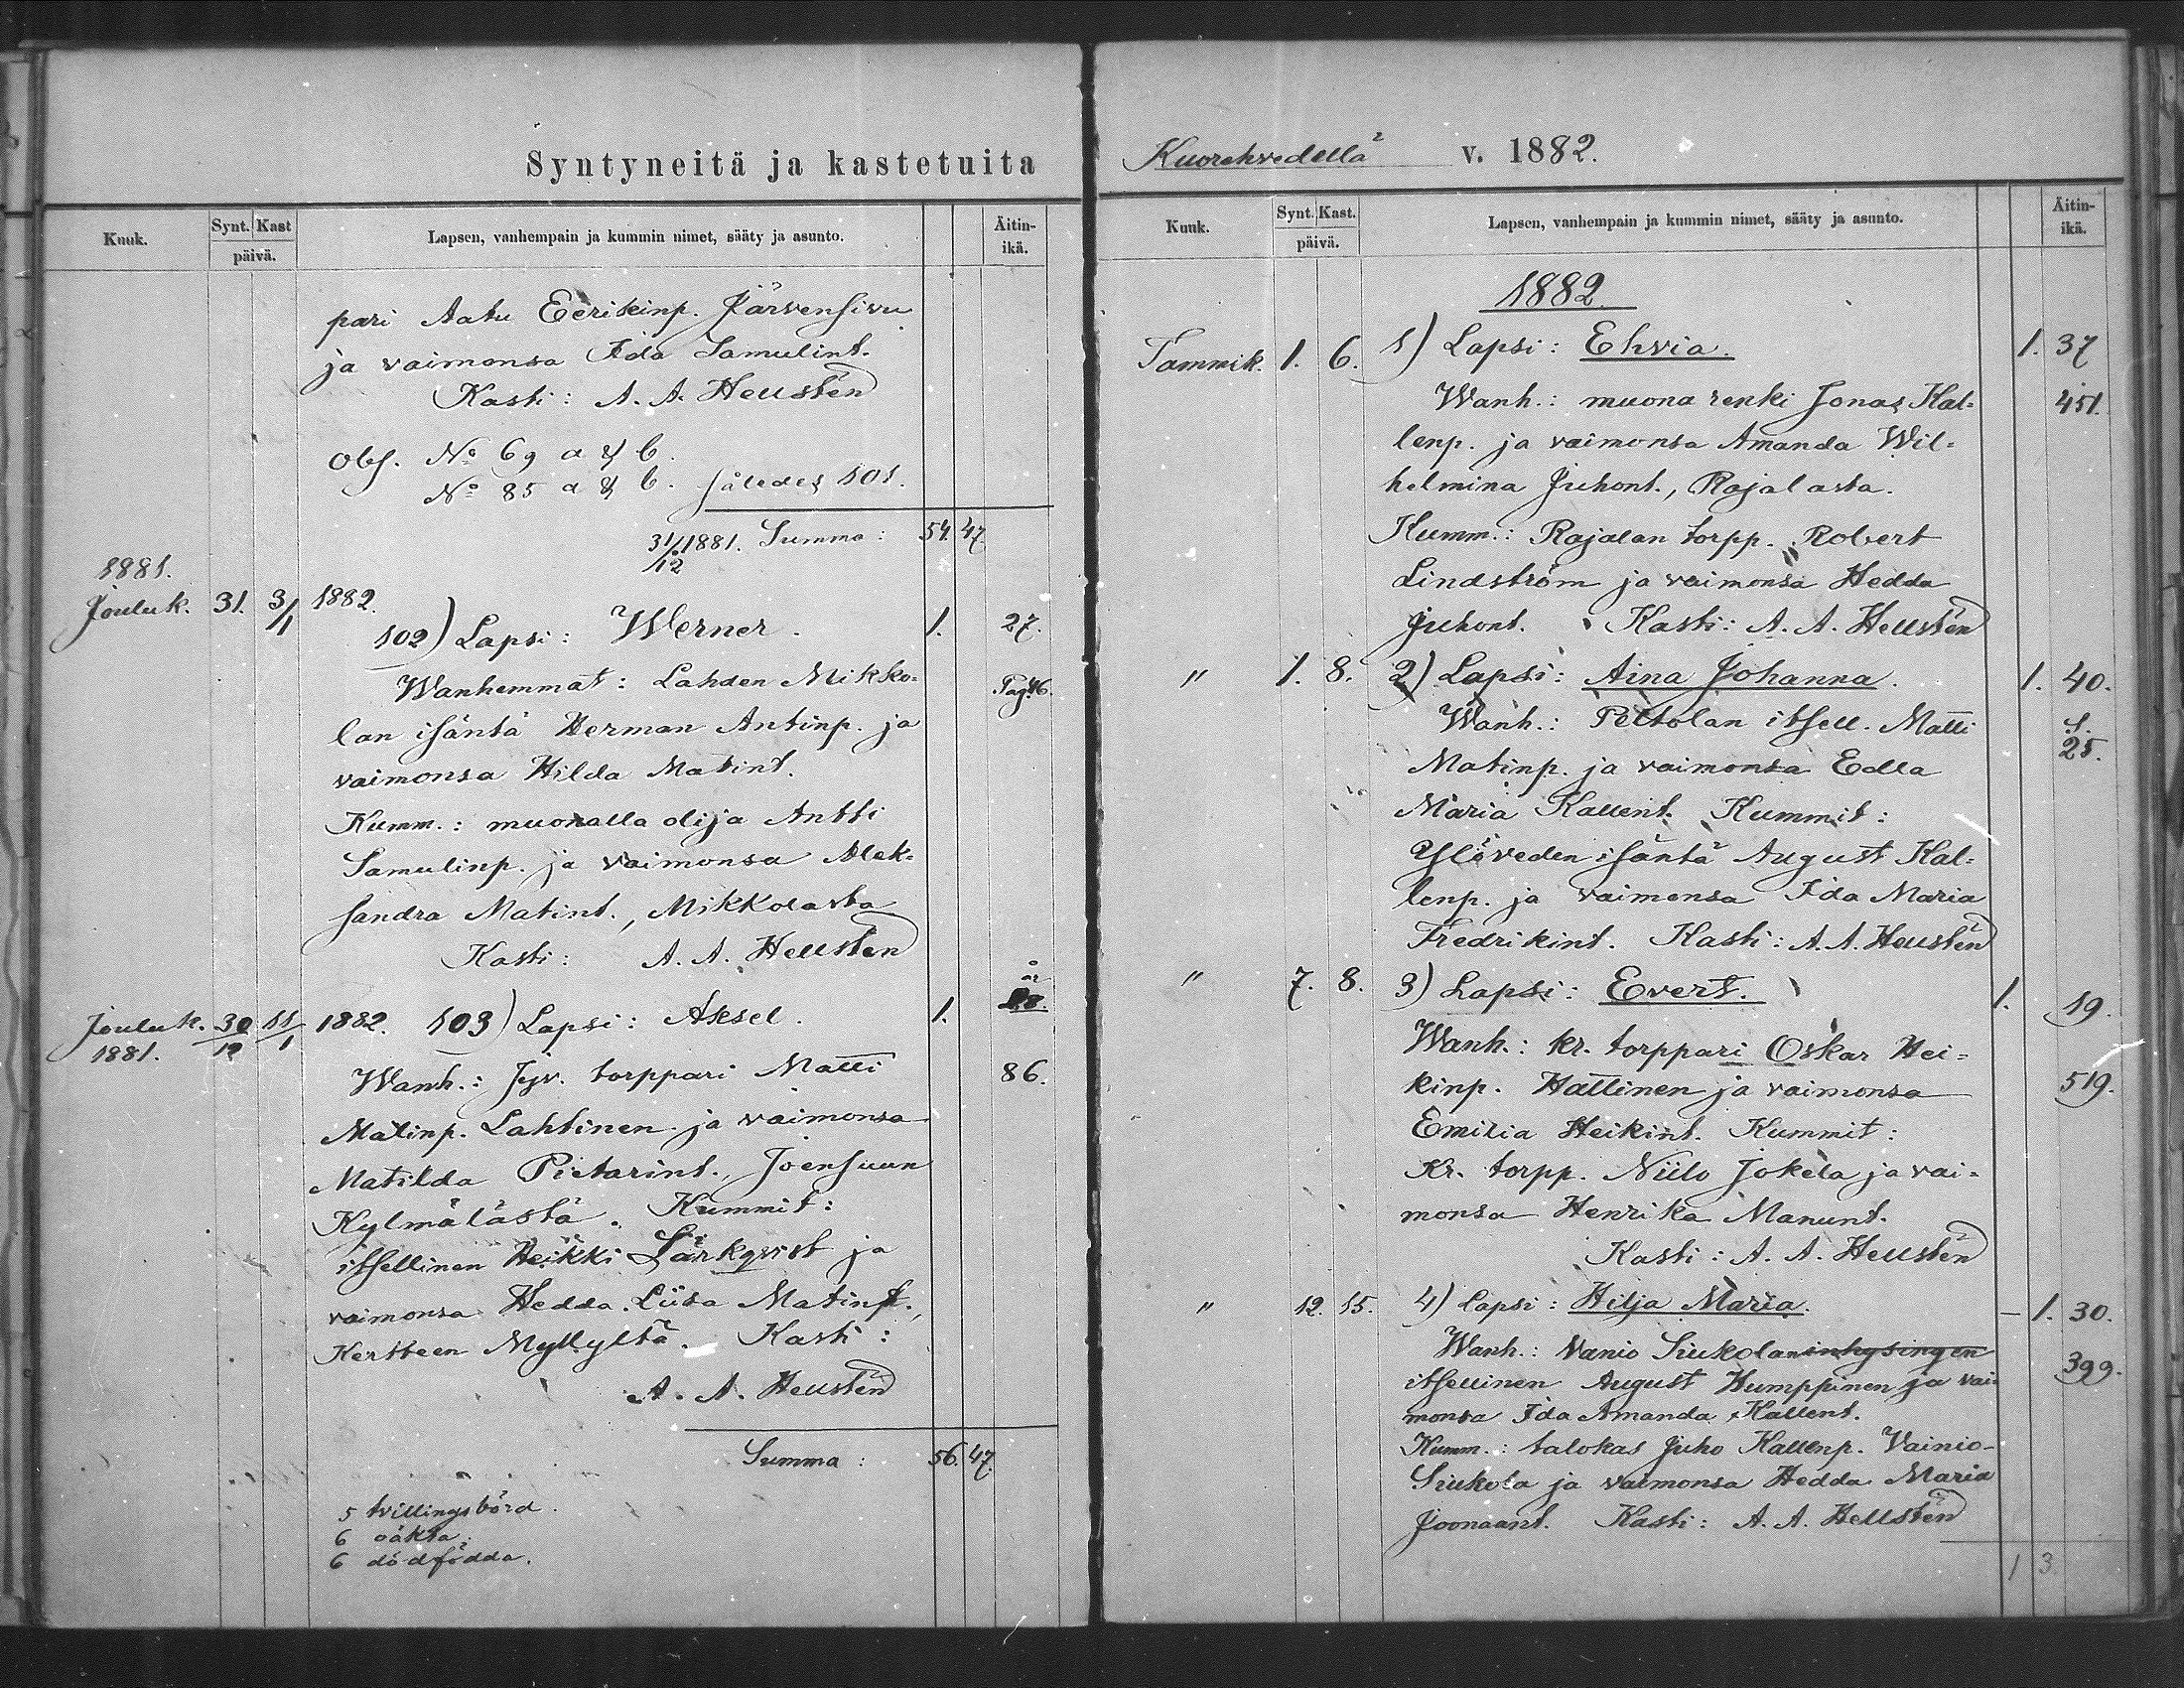 Syntyneitä ja kastetuita
Kuuk.
Synt. Kast
päivä.
Lapsen, vanhempain ja kummin nimet, sääty ja asunto.
Äitin-
ikä.
pari Aatu Eerikinp. Järvensivu
ja vaimonsa Ida Samulint.
Kasti: A. A. Hellstén
Obs. No 69 a & b.
No 85 a & b. således 101.
31/12 1881. Summa: 54. 47.
1881.
Jouluk. 31. 3/1 1882.
102) Lapsi: Werner. 1. 27.
Wanhemmat: Lahden Mikko- Pag. 46.
lan isäntä Herman Antinp. ja
vaimonsa Hilda Matint.
Kumm.: muonalla olija Antti
Samulinp. ja vaimonsa Alek-
sandra Matint., Mikkolasta
Kasti: A. A. Hellstén
år
Jouluk. 30/12 11/1 1882. 103) Lapsi: Aksel. 1. 28.
1881.
Wanh.: Jyv. torppari Matti 86.
Matinp. Lahtinen ja vaimonsa
Matilda Pietarint., Joensuun
Kylmälästä. Kummit:
itsellinen Heikki Lärkqvist ja
vaimonsa Hedda Liisa Matint.,
Kertteen Myllyltä. Kasti:
A. A. Hellstén
Summa: 56. 47.
5 tvillingsbörd.
6 oäkta.
6 dödfödda.
Kuorehvedellä v. 1882.
Kuuk.
Synt. Kast.
päivä.
Lapsen, vanhempain ja kummin nimet, sääty ja asunto.
Äitin-
ikä.
1882.
Tammik. 1. 6. 1) Lapsi: Ehvia. 1. 37
Wanh.: muona renki Jonas Kal- 451.
lenp. ja vaimonsa Amanda Wil-
helmina Juhont., Rajalasta.
Kumm.: Rajalan torpp. Robert
Lindström ja vaimonsa Hedda
Juhont. Kasti: A. A. Hellstén
" 1. 8. 2) Lapsi: Aina Johanna. 1. 40.
Wanh.: Peltolan itsell. Matti S.
Matinp. ja vaimonsa Edla 25.
Maria Kallent. Kummit:
Ylöveden isäntä August Kal-
lenp. ja vaimonsa Ida Maria
Fredrikint. Kasti: A. A. Hellstén
" 7. 8. 3) Lapsi: Evert. 1. 19.
Wanh.: kr. torppari Oskar Hei-
kinp. Hattinen ja vaimonsa 519.
Emilia Heikint. Kummit:
Kr. torpp. Niilo Jokela ja vai-
monsa Henrika Manunt.
Kasti: A. A. Hellstén
" 12. 15. 4) Lapsi: Hilja Maria. – 1. 30.
Wanh.: Vanio Siukolan inhysingen
itsellinen August Humppinen ja vai- 399.
monsa Ida Amanda Kallent.
Kumm.: talokas Juho Kallenp. Vainio-
Siukola ja vaimonsa Hedda Maria
Joonaant. Kasti: A. A. Hellstén
1 3